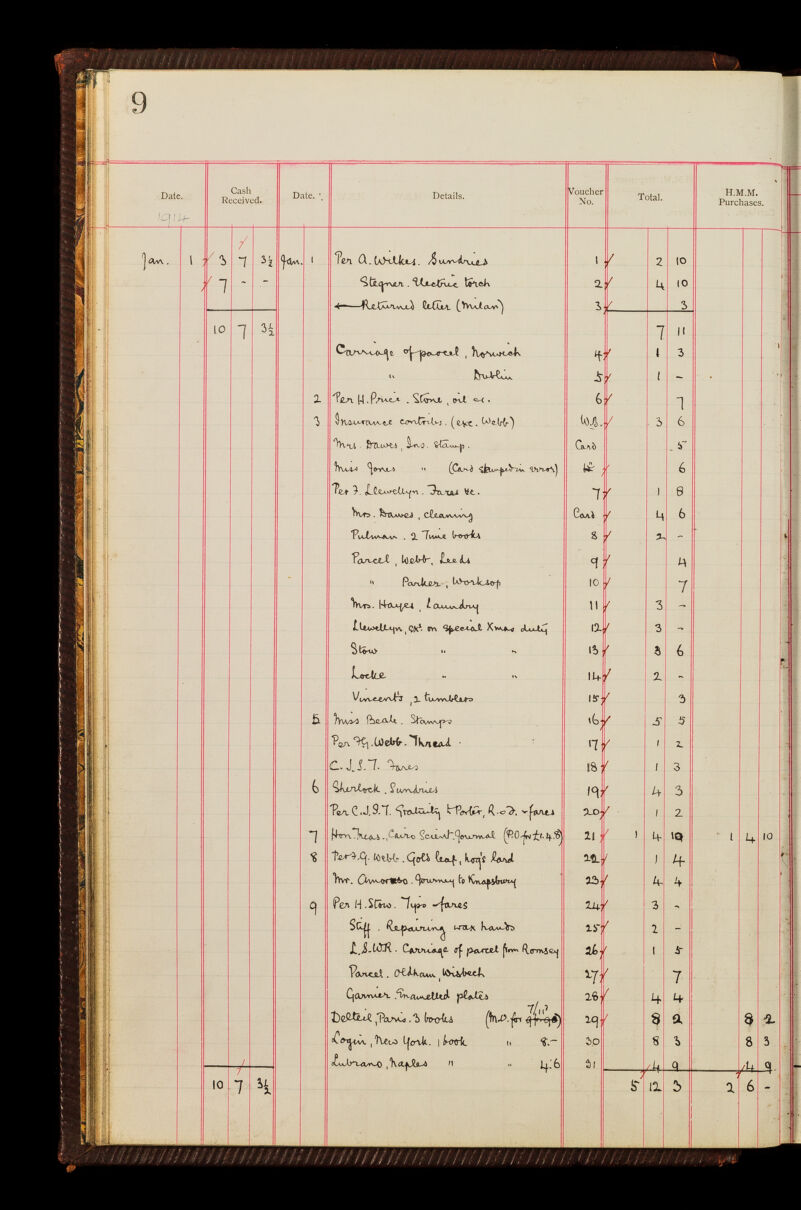 9
Date. Cash Received. Date. Details. Voucher No. Total. H.M.M. Purchases.
1914
Jan. 1 3 7 3½ Jan. 1 Per A. Wilkes. Sundries 1 2 10
7 - - Stegner. Electric torch 2 4 10
Returned letter (Milan) 3 3
10 7 3½ 7 11
Carriage of parcel, Norwich 4 1 3
" Dublin 5 1 -
2 Per H. Price. Stone, oil &c. 6 7
3 Insurance contribs. (exc. Webb) W.B. 3 6
Mrs. Dawes, Ins. Stamp. Card 5
Miss Jones " (Card stamped in error) 6
Per F. Llewellyn. Fares &c. 7 1 8
Mrs. Dawes, cleaning Card 4 6
Pulman. 2 Time books 8 2 -
Parcel, Webb, Leeds 9 4
" Parker, Worksop 10 7
Mrs. Hayes, Laundry 11 3 -
Llewellyn, ext on special Xmas duty 12 3 -
Stow " " 13 3 6
Locke " " 14 2 -
Vincent's, 2 tumblers 15 3
5 Miss Beale. Stamps 16 5 5
Per Webb. Thread 17 1 2
C.J.S.T. Fares 18 1 3
6 Sherlock. Sundries 19 4 3
Per C.J.S.T. Gratuity to Porter, & fares 20 1 2
7 Hon. Treas., Cairo Scient. Journal (P.O. for £1.4.8) 21 1 4 10 1 4 10
8 Per F.G. Webb. Gold leaf, hog's lard 22 1 4
Mr. Amoruso. Journey to Knapsbury 23 4 4
9 Per H. Stow. Typo & fares 24 3 -
Stiff. Repairing wax hands 25 2 -
L.S.W.R. Carriage of parcel from Romsey 26 1 5
Parcel. Oldham, Wisbech 27 7
Garnier. Enamelled plates 28 4 4
7/11?
Delteil, Paris. 3 books (M.O. for) 29 8 2 8 2
Login, New York. 1 book " 8.- 30 8 3 8 3
Lubrano, Naples " " 4.6 31 4 9 4 9
10 7 3½ 5 12 3 2 6 -